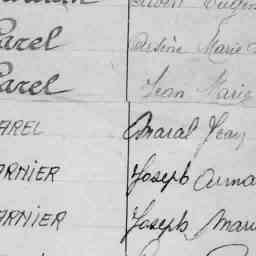 Carel Arsène Marie
Carel Jean Marie
CAREL Jean
ARNIER Joseph Arma
ARNIER Joseph Mari